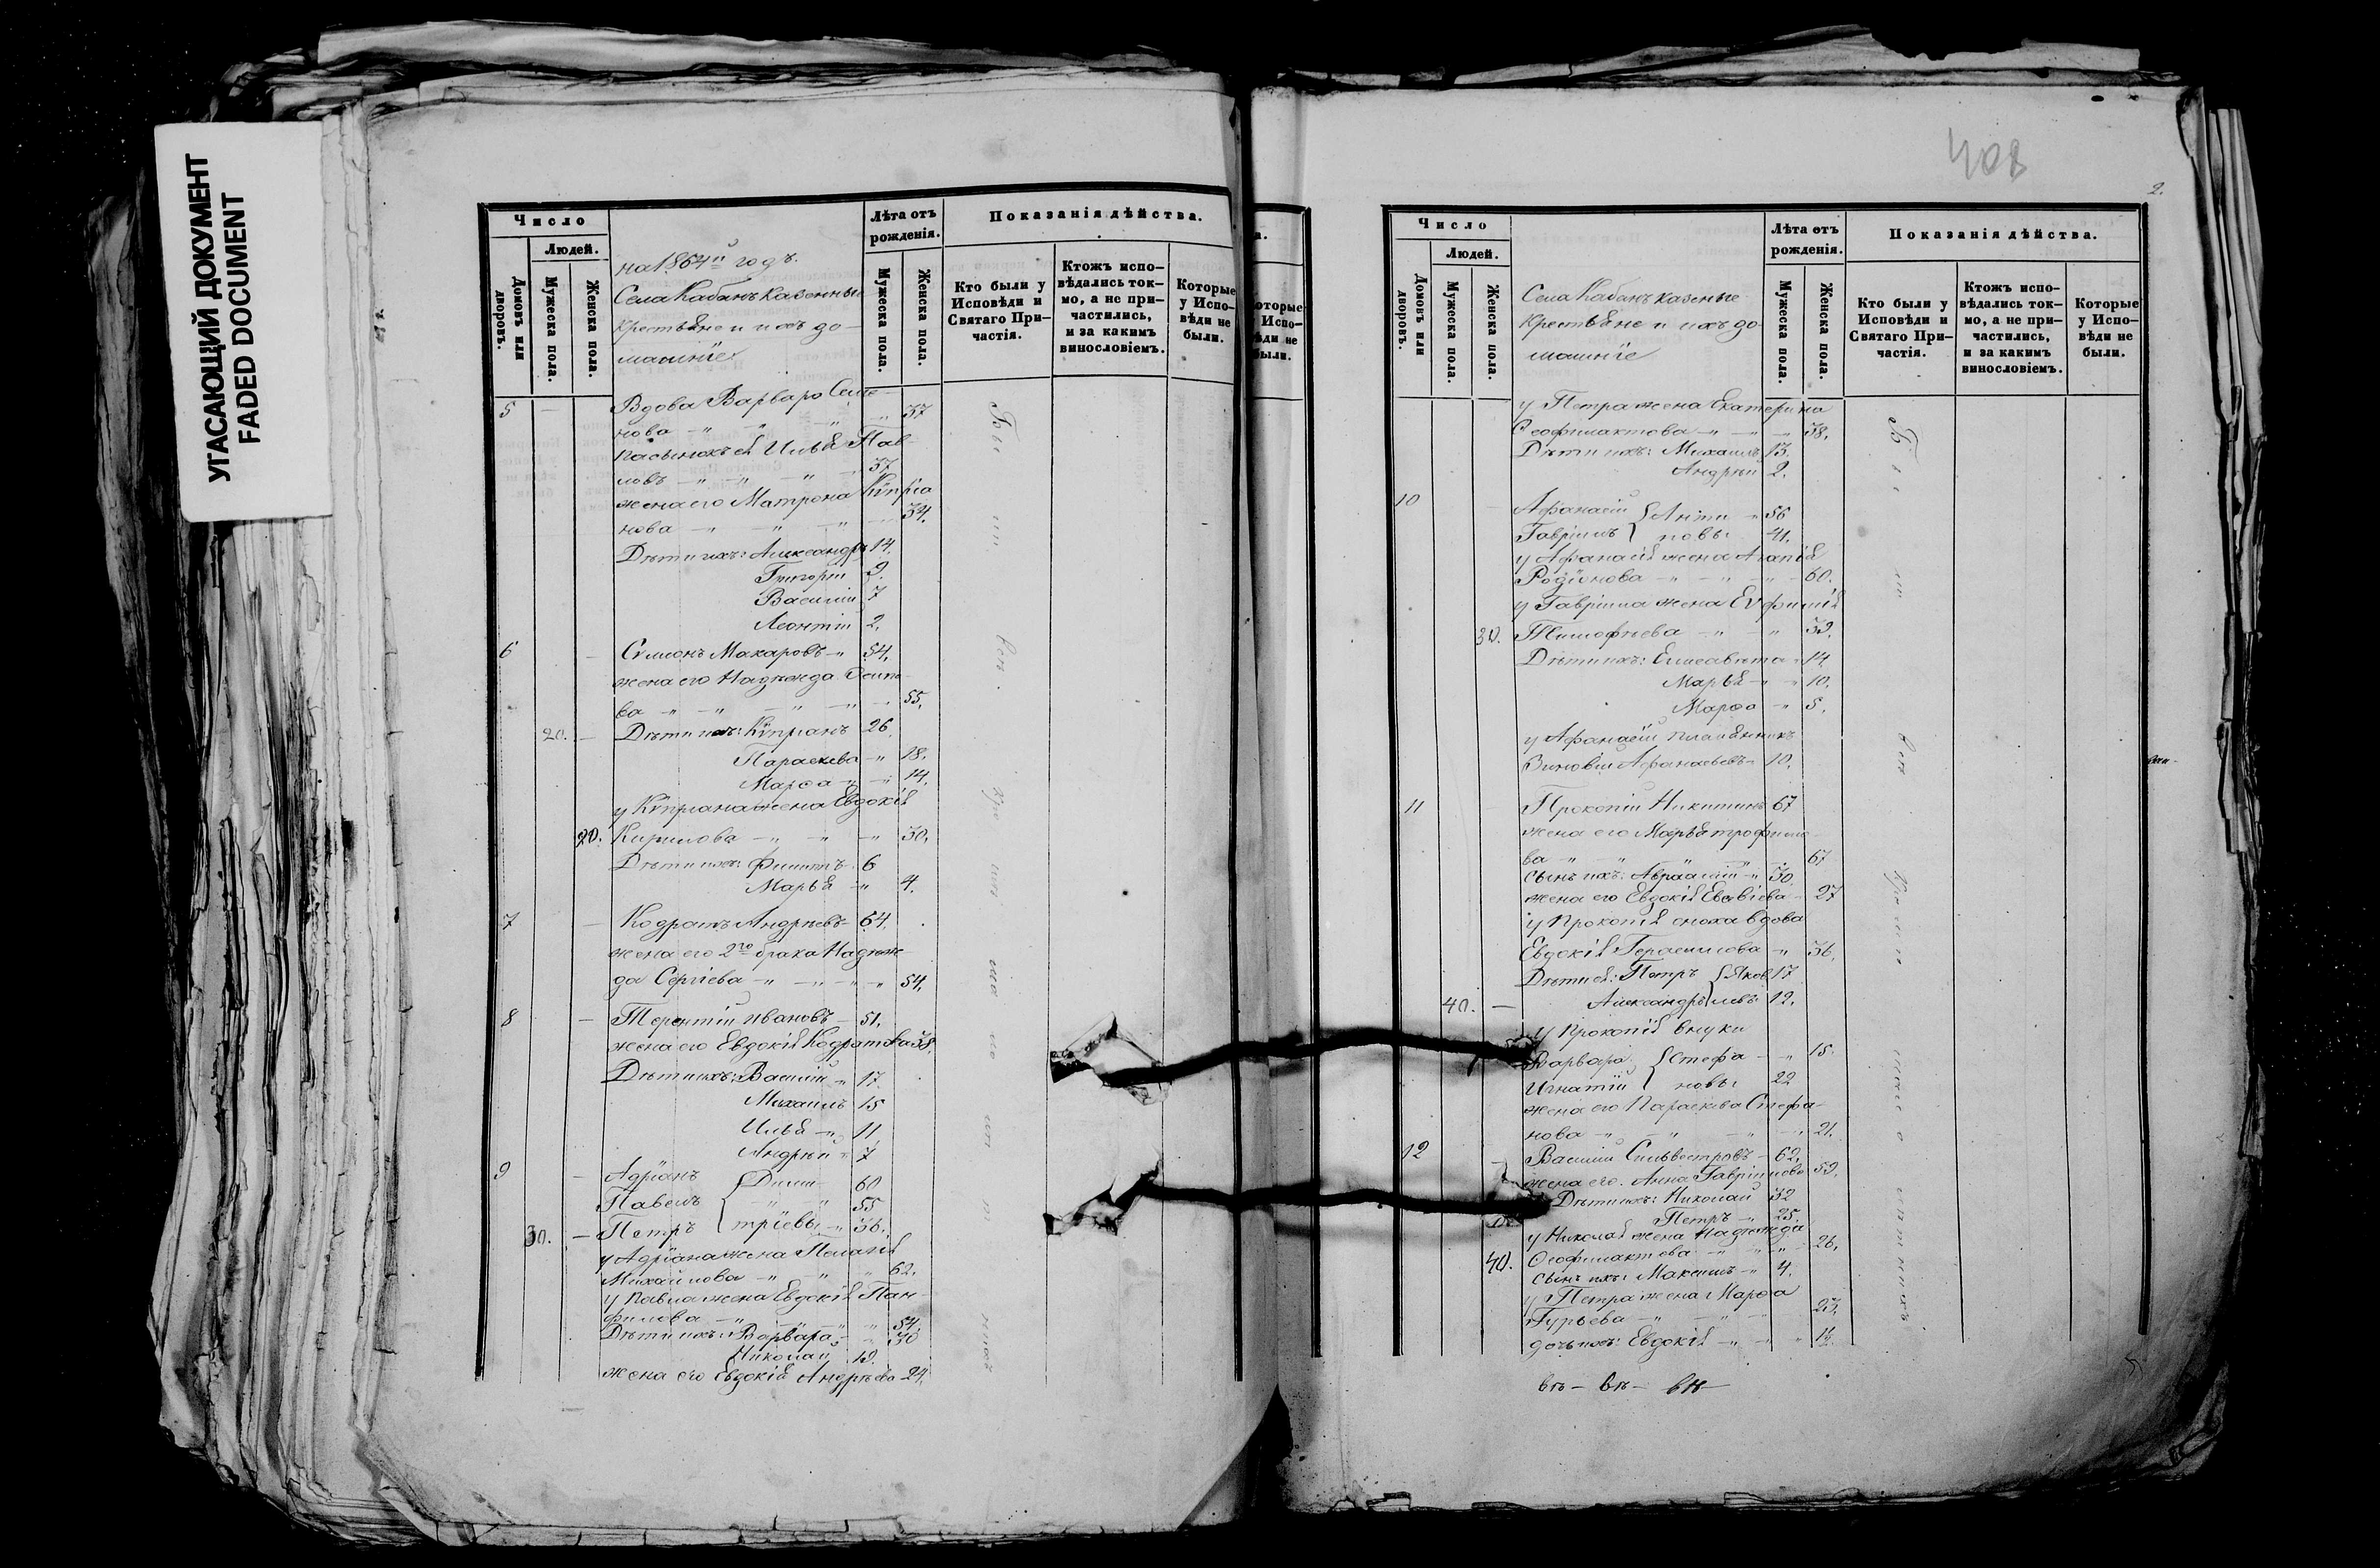 УГАСАЮЩИЙ ДОКУМЕНТ
FADED DOCUMENT
Число
Людей.
Домовъ или дворовъ.
Мужеска пола.
Женска пола.
на 1864й годъ.
Села Кабанъ казенные
крестьяне и ихъ до-
машніе
Лѣта отъ рожденія.
Мужеска пола.
Женска пола.
Показанія дѣйства.
Кто были у Исповѣди и Святаго При-частія.
Ктожъ испо-вѣдались ток-мо, а не при-частились, и за какимъ винословіемъ.
Которые у Испо-вѣди не были.
5 Вдова Варвара Семе-
нова 37
пасынокъ ея Илья Пав-
ловъ 37
жена его Матрона Кѵпріа
нова 34.
Дѣти ихъ: Александръ 14.
Григорій 9.
Василій 7
Леонтій 2.
6 Сѵмеонъ Макаровъ 54.
жена его Надежда Осипо-
ва 55.
20. Дѣти ихъ: Кѵпріанъ 26.
Параскева 18.
Марѳа 14.
у Кѵпріана жена Евдокія
20. Кирилова 30.
Дѣти ихъ: Филиппъ 6
Марья 4.
7 Кодратъ Андреевъ 64.
жена его 2го брака Надеж-
да Сергіева 54.
8 Терентій Ивановъ 51.
жена его Евдокія Кодратова 38.
Дѣти ихъ: Василій 17.
Михаилъ 15
Илья 11
Андрей 7
9 Адріанъ { Дими- 60
Павелъ 55
30. Петръ { тріевы 36.
у Адріана жена Пелагія
Михайлова 62.
у Павла жена Евдокія Пан-
филова 54.
Дѣти ихъ: Варвара 30
Николай 19.
жена его Евдокія Андреева 24.
408
2.
Число
Людей.
Домовъ или дворовъ.
Мужеска пола.
Женска пола.
Села Кабанъ казеные
крестьяне и ихъ до
машніе
Лѣта отъ рожденія.
Мужеска пола.
Женска пола.
Показанія дѣйства.
Кто были у Исповѣди и Святаго При-частія.
Ктожъ испо-вѣдались ток-мо, а не при-частились, и за какимъ винословіемъ.
Которые у Испо-вѣди не были.
у Петра жена Екатерина
Ѳеофилактова 38.
Дѣти ихъ: Михаилъ 13.
Андрей 2.
10 Афанасій { Анти 56
Гавріилъ { повы 41.
у Афанасія жена Агапія
Родіонова 60.
у Гавріила жена Евфимія
30. Тимофѣева 39.
Дѣти ихъ: Елисавета 14.
Марья 10.
Марѳа 5.
у Афанасія племянникъ
Зиновій Афанасьевъ 10.
11 Прокопій Никитинъ 67
жена его Марья трофимо-
ва 67
сынъ ихъ: Аврамій 30
жена его Евдокія Евсевіева 27
у Прокопія сноха вдова
Евдокія Герасимова 36.
Дѣти ея: Петръ { Яков 17
40. Александръ { левы 12.
у Прокопія внуки
Варвара { Стефа 15.
Игнатій { новы 22
жена его Параскева Стефа-
нова 21.
12 Василій Сильвестровъ 62.
жена его Анна Гавріилова 59.
Дѣти ихъ: Николай 32
Петръ 25.
у Николая жена Надежда
40. Ѳеофилактова 26.
сынъ ихъ: Максимъ 4.
у Петра жена Марѳа
Гурьева 23.
дочь ихъ: Евдокія